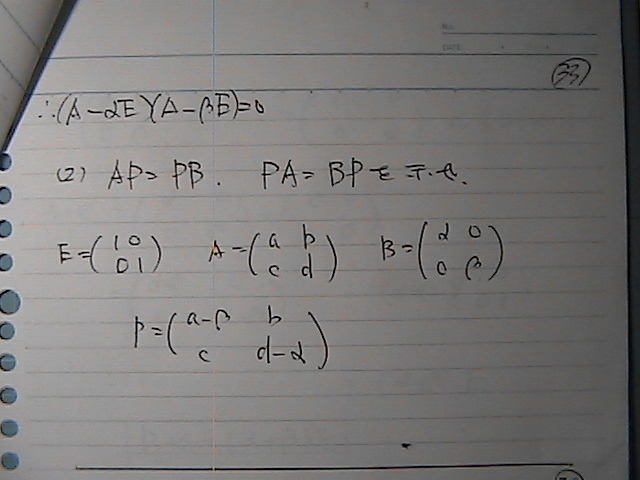 NO.
DATE
33
∴(A-αE)(A-βE)=0
(2) AP=PB. PA=BPを示せ.
E=(1 0 0 1) A=(a b c d) B=(α 0 0 β)
P=(a-β b c d-α)